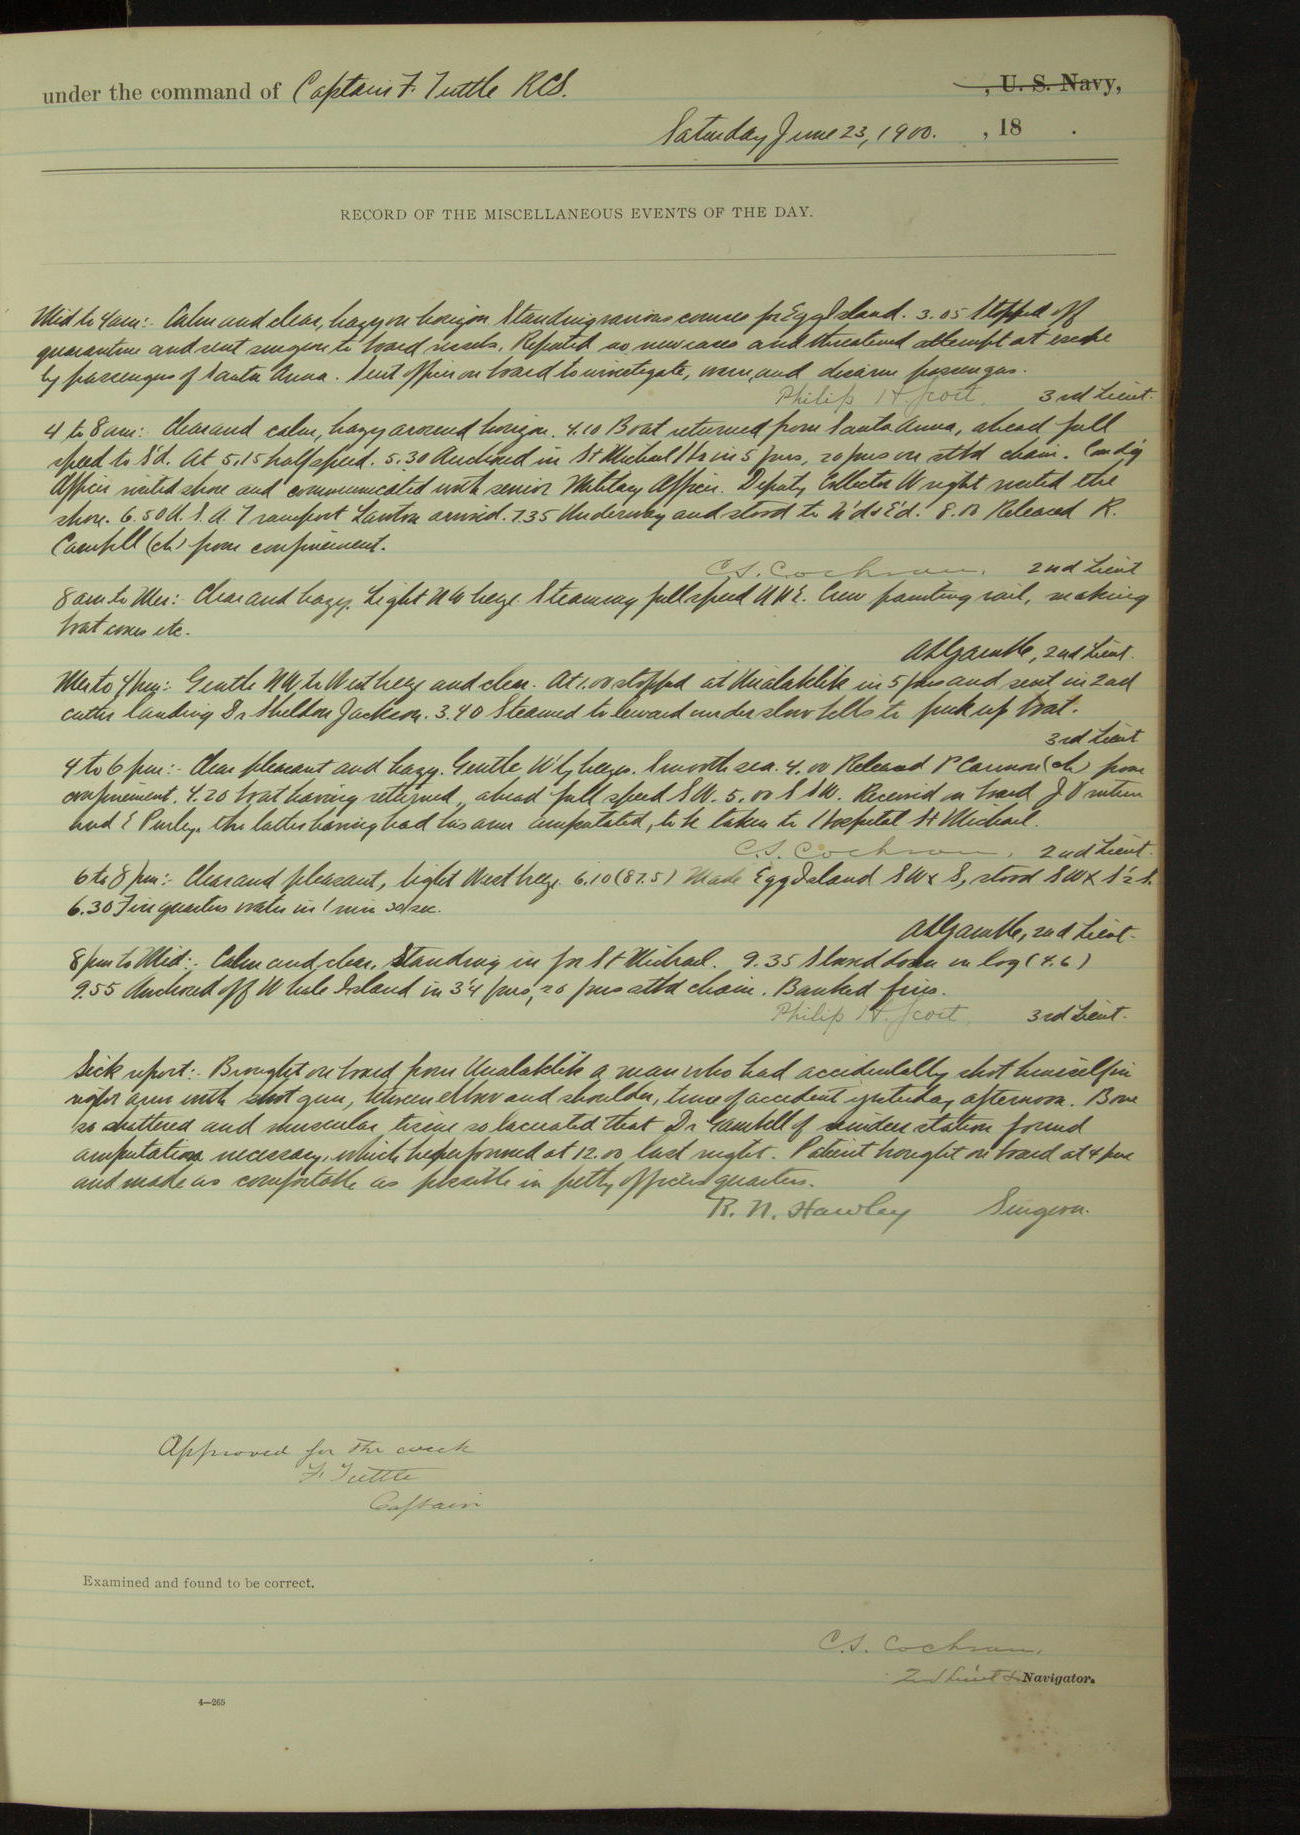 under the command of Captain F. Tuttle RCS. , U. S. Navy,
Saturday June 23, 1900. , 18 .
RECORD OF THE MISCELLANEOUS EVENTS OF THE DAY.
Mid to 4 am:- Calm and clear, hazy on horizon Standing various courses for Egg Island. 3.05 Stopped off
quarantine and sent surgeon to board vessels. Reported no new cases and threatened attempt at escape
by passengers of Santa Anna. Sent officer on board to investigate, warn, and disarm passengers.
Philip H. Scott. 3rd Lieut.
4 to 8 am: Clear and calm, hazy around horizon. 4.10 Boat returned from Santa Anna, ahead full
speed to S'd. At 5.15 half speed. 5.30 Anchored in St Michael Hbr in 5 fms, 20 fms on stb'd chain. Comd'g
Officer visited shore and communicated with senior Military Officer. Deputy Collector Wright visited the
shore. 6.50 U.S.A. Transport Lawton arrived. 7.35 Underway and stood to N'd & E'd. 8.00 Released R.
(ck) from confinement.
C.S. Cochran. 2nd Lieut
8 am to Mer: Clear and hazy, Light NW breeze. Steaming full speed NNE. Crew painting rail, making
boat covers etc.
A L Gamble, 2nd Lieut.
Mer to 4 pm: Gentle NW to West breeze and clear. At 1.00 stopped at Unalaklik in 5 fms and sent in 2nd
cutter landing Dr Sheldon Jackson. 3.40 Steamed to leeward under slow bells to pick up boat.
3rd Lieut
4 to 6 pm:- Clear pleasant and hazy. Gentle W'ly breezes. Smooth sea. 4.00 Released P Cannon (ck) from
confinement. 4.20 boat having returned, ahead full speed SW. 5.00 S'SW. Received on board J
and E Purley, the latter having had his arm amputated, to be taken to Hospital St Michael.
C.S. Cochran. 2nd Lieut.
6 to 8 pm:- Clear and pleasant, light West breeze. 6.10 (87.5) Made Egg Island SWxS, stood SWxS½S.
6.30 Fire quarters water in 1 min 30 sec.
A L Gamble, 2nd Lieut.
8 pm to Mid:- Calm and clear. Standing in for St Michael. 9.35 Slowed down on log (4.6)
9.55 Anchored off Whale Island in 3¼ fms, 20 fms stb'd chain. Banked fires.
Philip H. Scott. 3rd Lieut.
Sick report:- Brought on board from Unalaklik a man who had accidentally shot himself in
right arm with shot gun, between elbow and shoulder, time of accident yesterday afternoon. Bone
so shattered and muscular tissue so lacerated that Dr Gambell of reindeer station found
amputation necessary, which he performed at 12.00 last night. Patient brought on board at 4 pm
and made as comfortable as possible in petty officers quarters.
R. N. Hawley Surgeon.
Approved for the week
F. Tuttle
Captain
Examined and found to be correct.
C.S. Cochran.
2nd Lieut & Navigator.
4—265